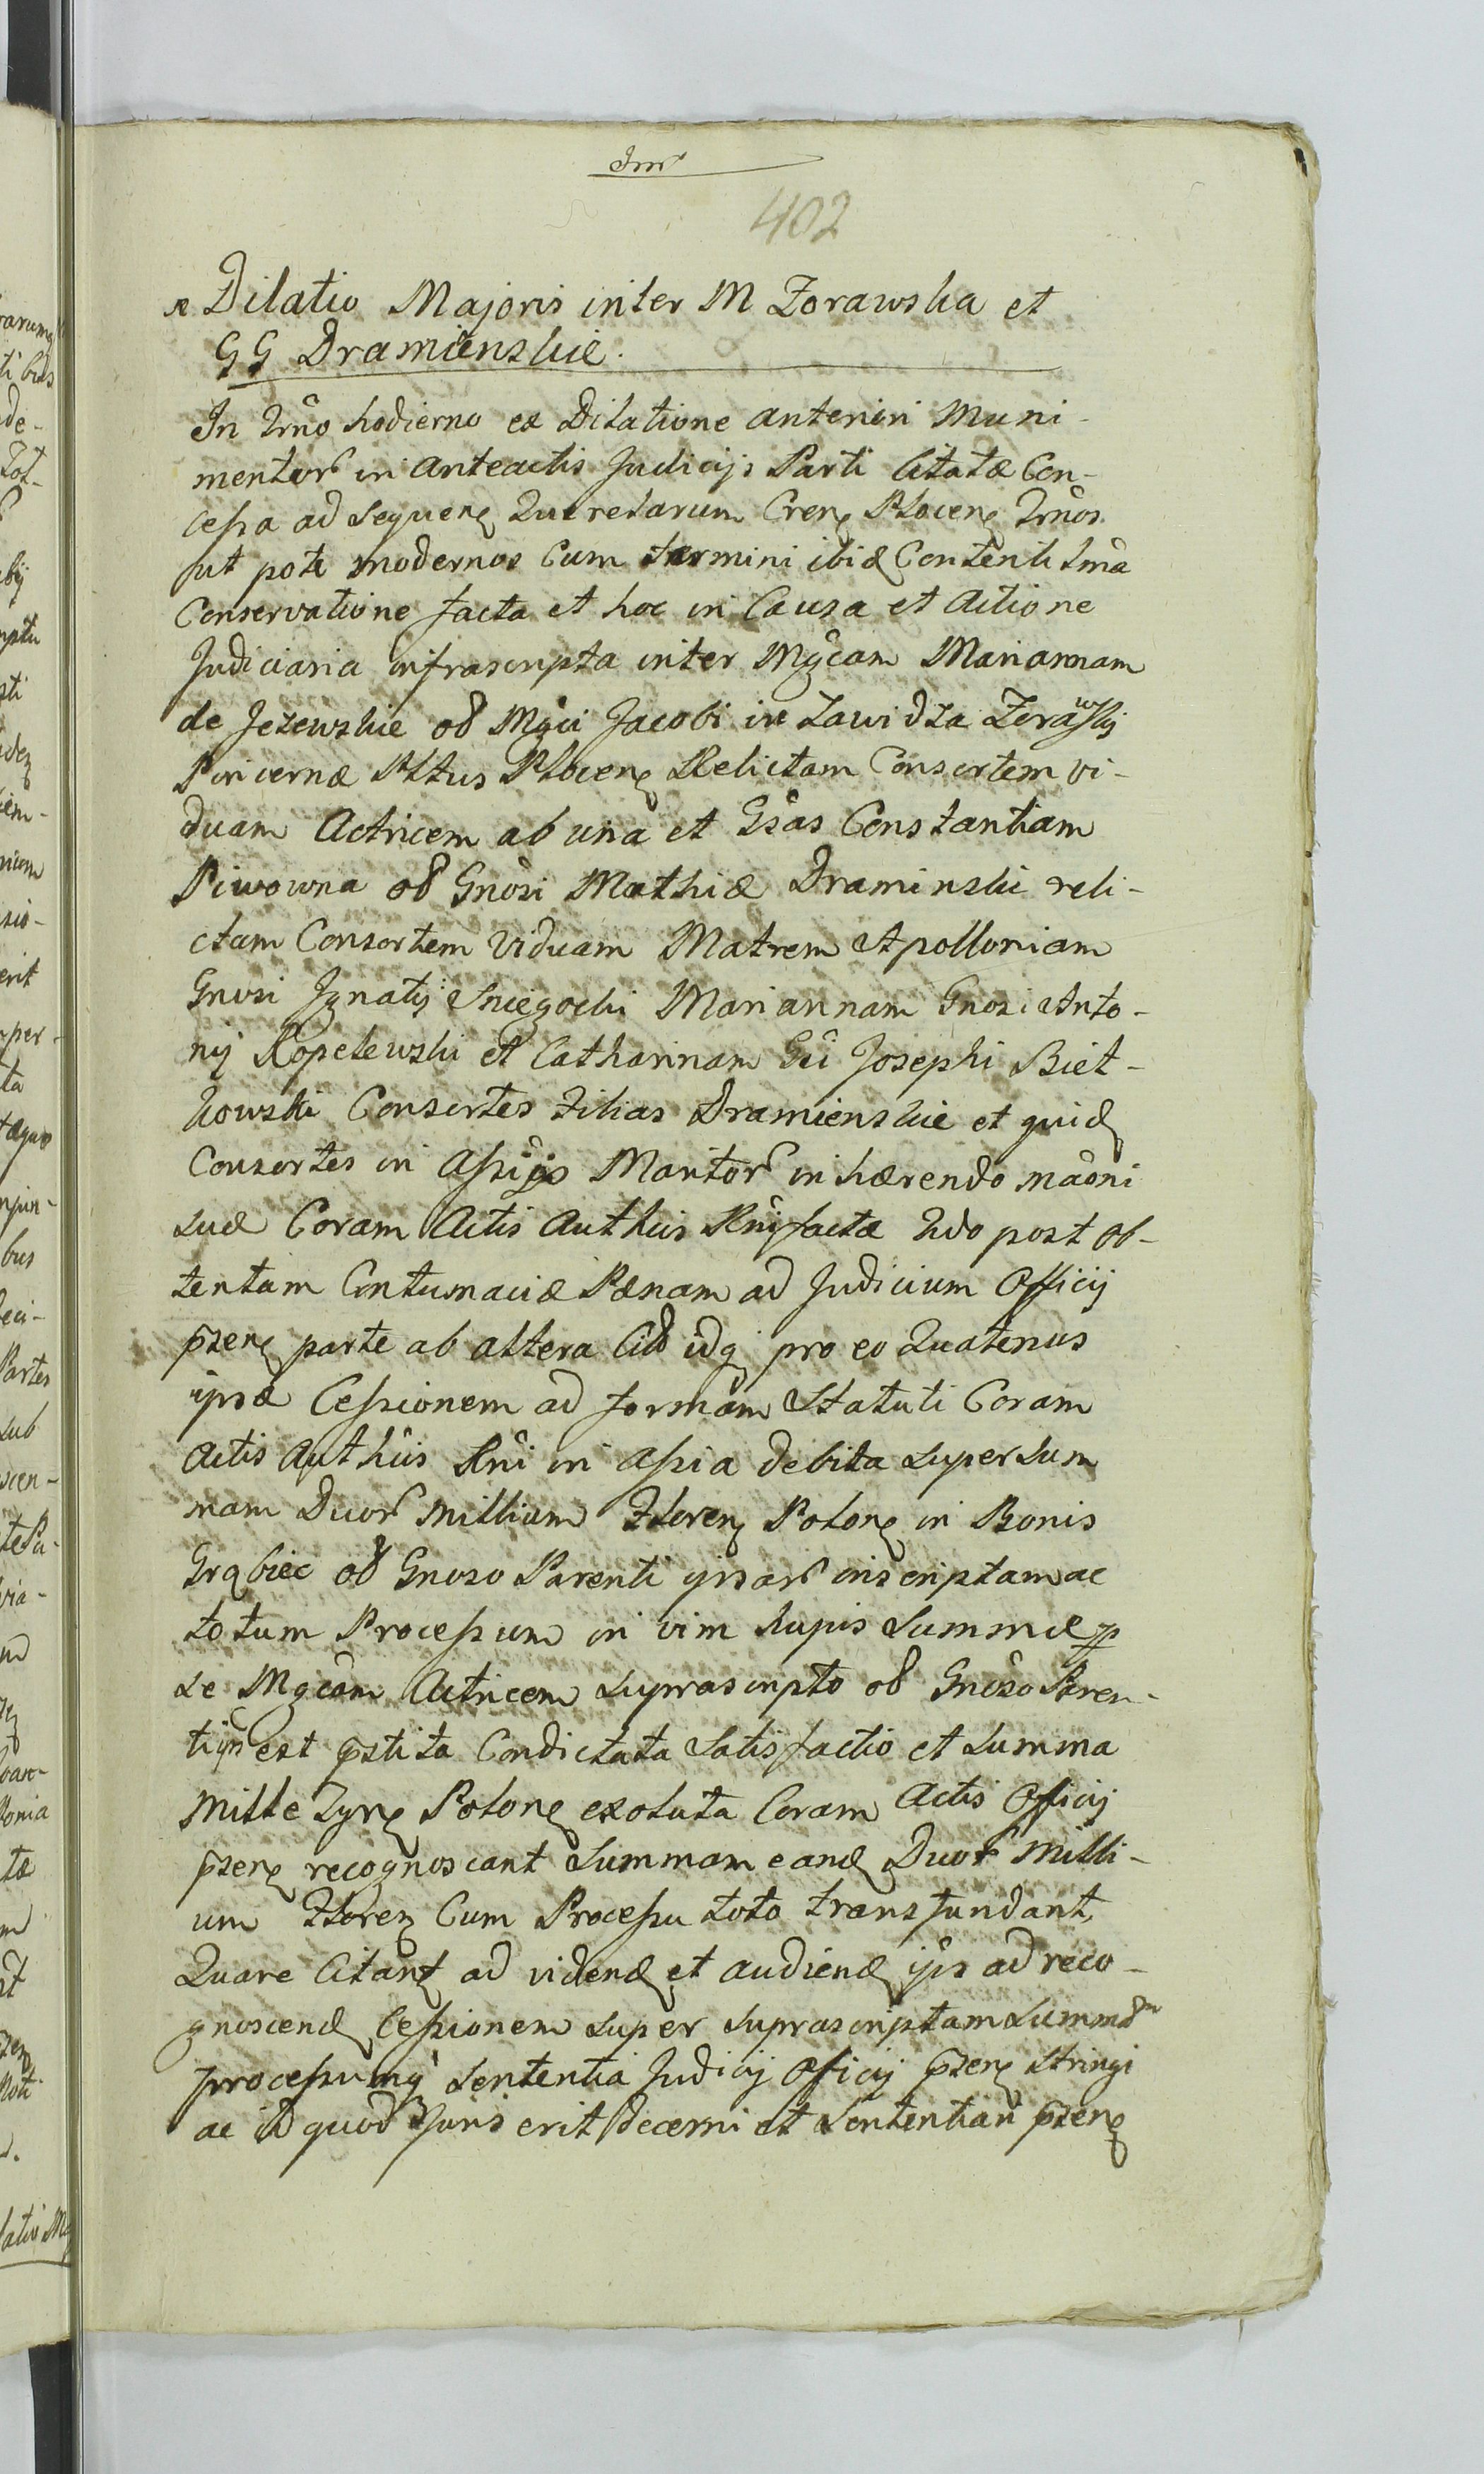 402
Dilatio Majoris inter M Zorawska et
GG Dramienskie.
In Trno hodierno ex Dilatione anteriori Muni-
mentor in anteactis Judicijs Parti Citatæ Con-
cessa ad sequen Querelarum Cren Plocen Trnos
ut pote modernos Cum termini ibid Contenti
Conservatione facta et hoc in Causa et Actione
Judiciaria infrascripta inter Mgcam Mariannam
de Jezewskie od Mgci Jacobi in Zawidza Zorawskj
Pincernæ Pltus Plocen Relictam Consortem vi-
duam Actricem ab una et Gsas Constantiam
Piwowna od Gnosi Mathiæ Draminski reli-
ctam Consortem Viduam Matrem Apolloniam
Gnosi Jgnatij Sniegocki Mariannam Gnosi Anto-
nij Kopelewski et Catharinam Gci Josephi Biet-
kowski Consortes Filias Dramienskie et quid
Consortes in Assijs Maritor in hærendo mãoni
suæ Coram Actis Authcis Rnij factæ Tdo post ob-
tentam Contumaciæ Pænam ad Judicium Officij
pzen parte ab altera Citt idq pro eo Quatenus
ipsæ Cessionem ad formam Statuti Coram
Actis Authcis Rni in Assia debita super sum
mam Duor Millium Floren Polon in Bonis
Grąbiec od Gnoso Parenti ipsar inscriptam ac
totum Processum in vim hujus Summæ p
se Mgcam Actricem suprascripto od Gnoso Paren-
ti ipis est pstita Condictata Satisfactio et Summa
Mille Tyn Polon exoluta Coram Actis Officij
pzen recognoscant Summam eand Duor Milli-
um Floren Cum Processu toto transfundant,
Quare Citant ad videnđ et audienđ ips ad reco-
gnoscenđ Cessionem super suprascriptam Summam
processumq sententia Judicij Officij pzen stringi
ac id quod Juris erit decerni et Sententiari pzen